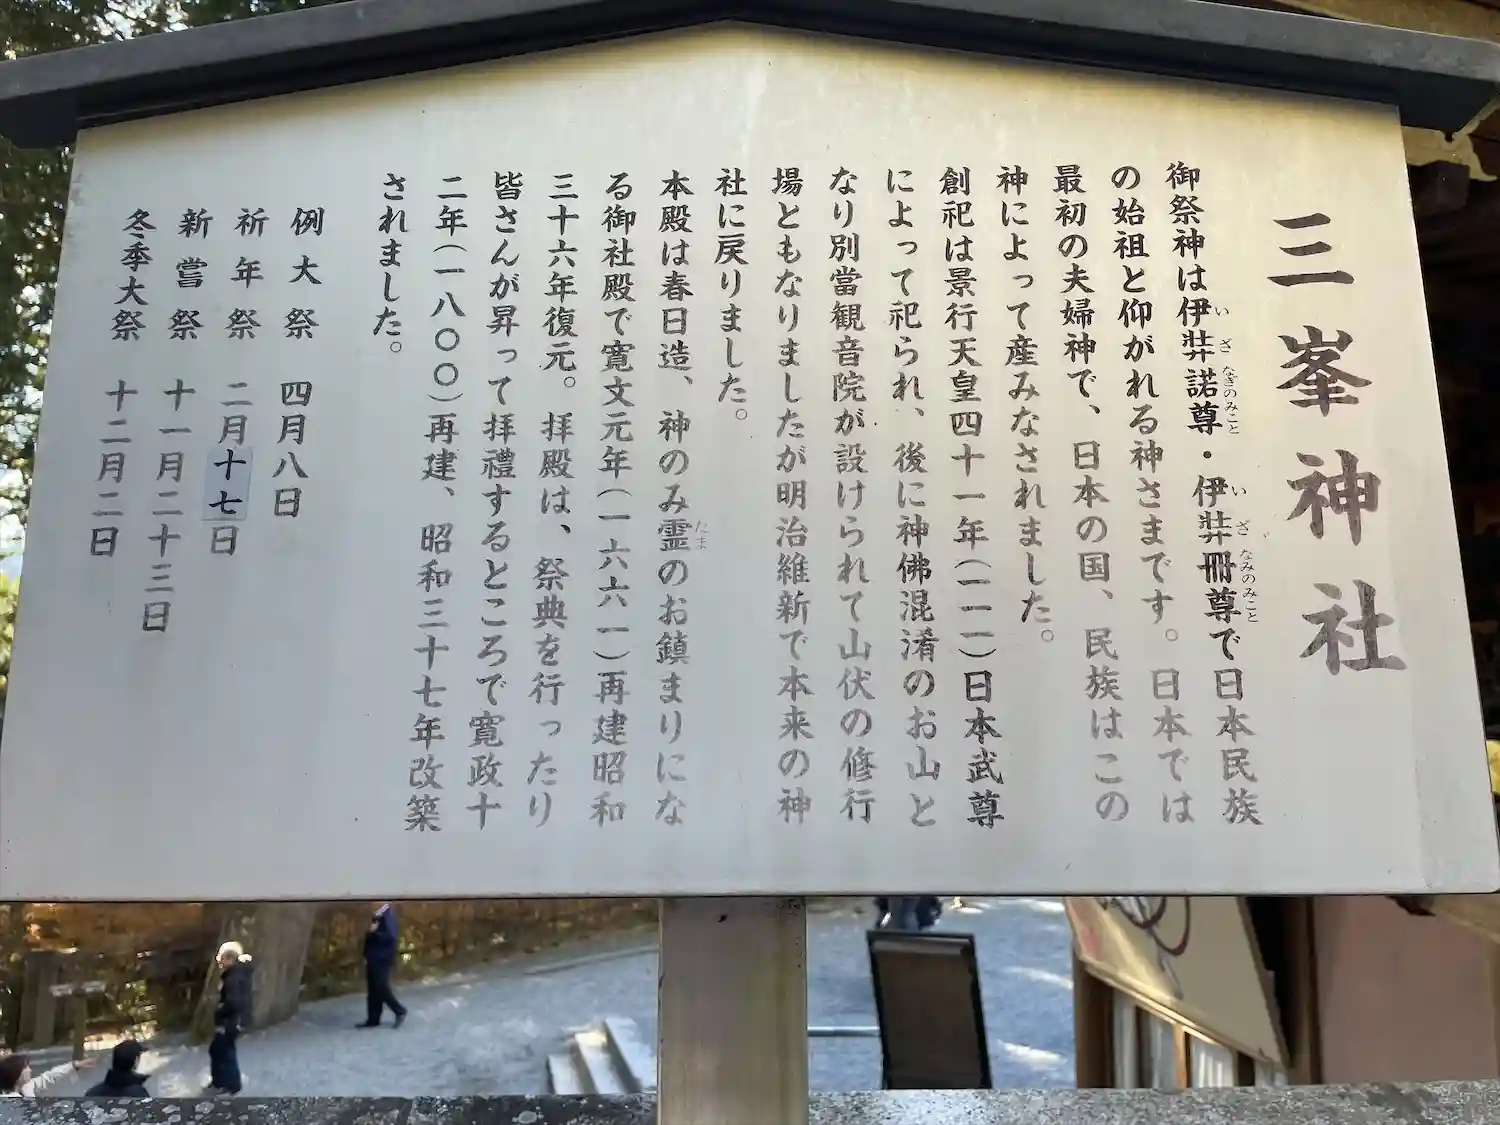 三峯神社
御祭神は伊弉諾尊・伊弉冊尊で日本民族
いざなぎのみこと
いざなみのみこと
の始祖と仰がれる神さまです。日本では
最初の夫婦神で、日本の国、民族はこの
神によって産みなされました。
創祀は景行天皇四十一年(一一一)日本武尊
によって祀られ、後に神佛混淆のお山と
なり別當観音院が設けられて山伏の修行
場ともなりましたが明治維新で本来の神
社に戻りました。
本殿は春日造、神のみ霊のお鎮まりにな
たま
る御社殿で寛文元年(一六六一)再建昭和
三十六年復元。拝殿は、祭典を行ったり
皆さんが昇って拝禮するところで寛政十
二年(一八〇〇)再建、昭和三十七年改築
されました。
例大祭 四月八日
祈年祭 二月十七日
新嘗祭 十一月二十三日
冬季大祭 十二月二日